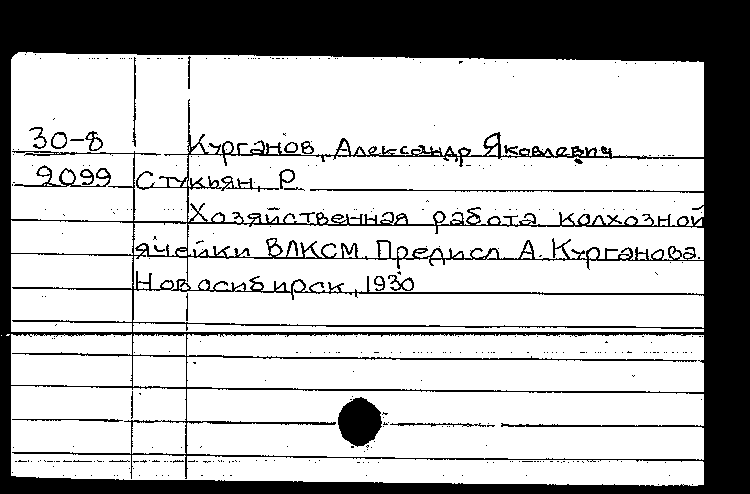 30-8 Курганов, Александр Яковлевич
2099 Стукьян, Р.
Хозяйственная работа колхозной
ячейки ВЛКСМ. Предисл А. Курганова.
Новосибирск, 1930